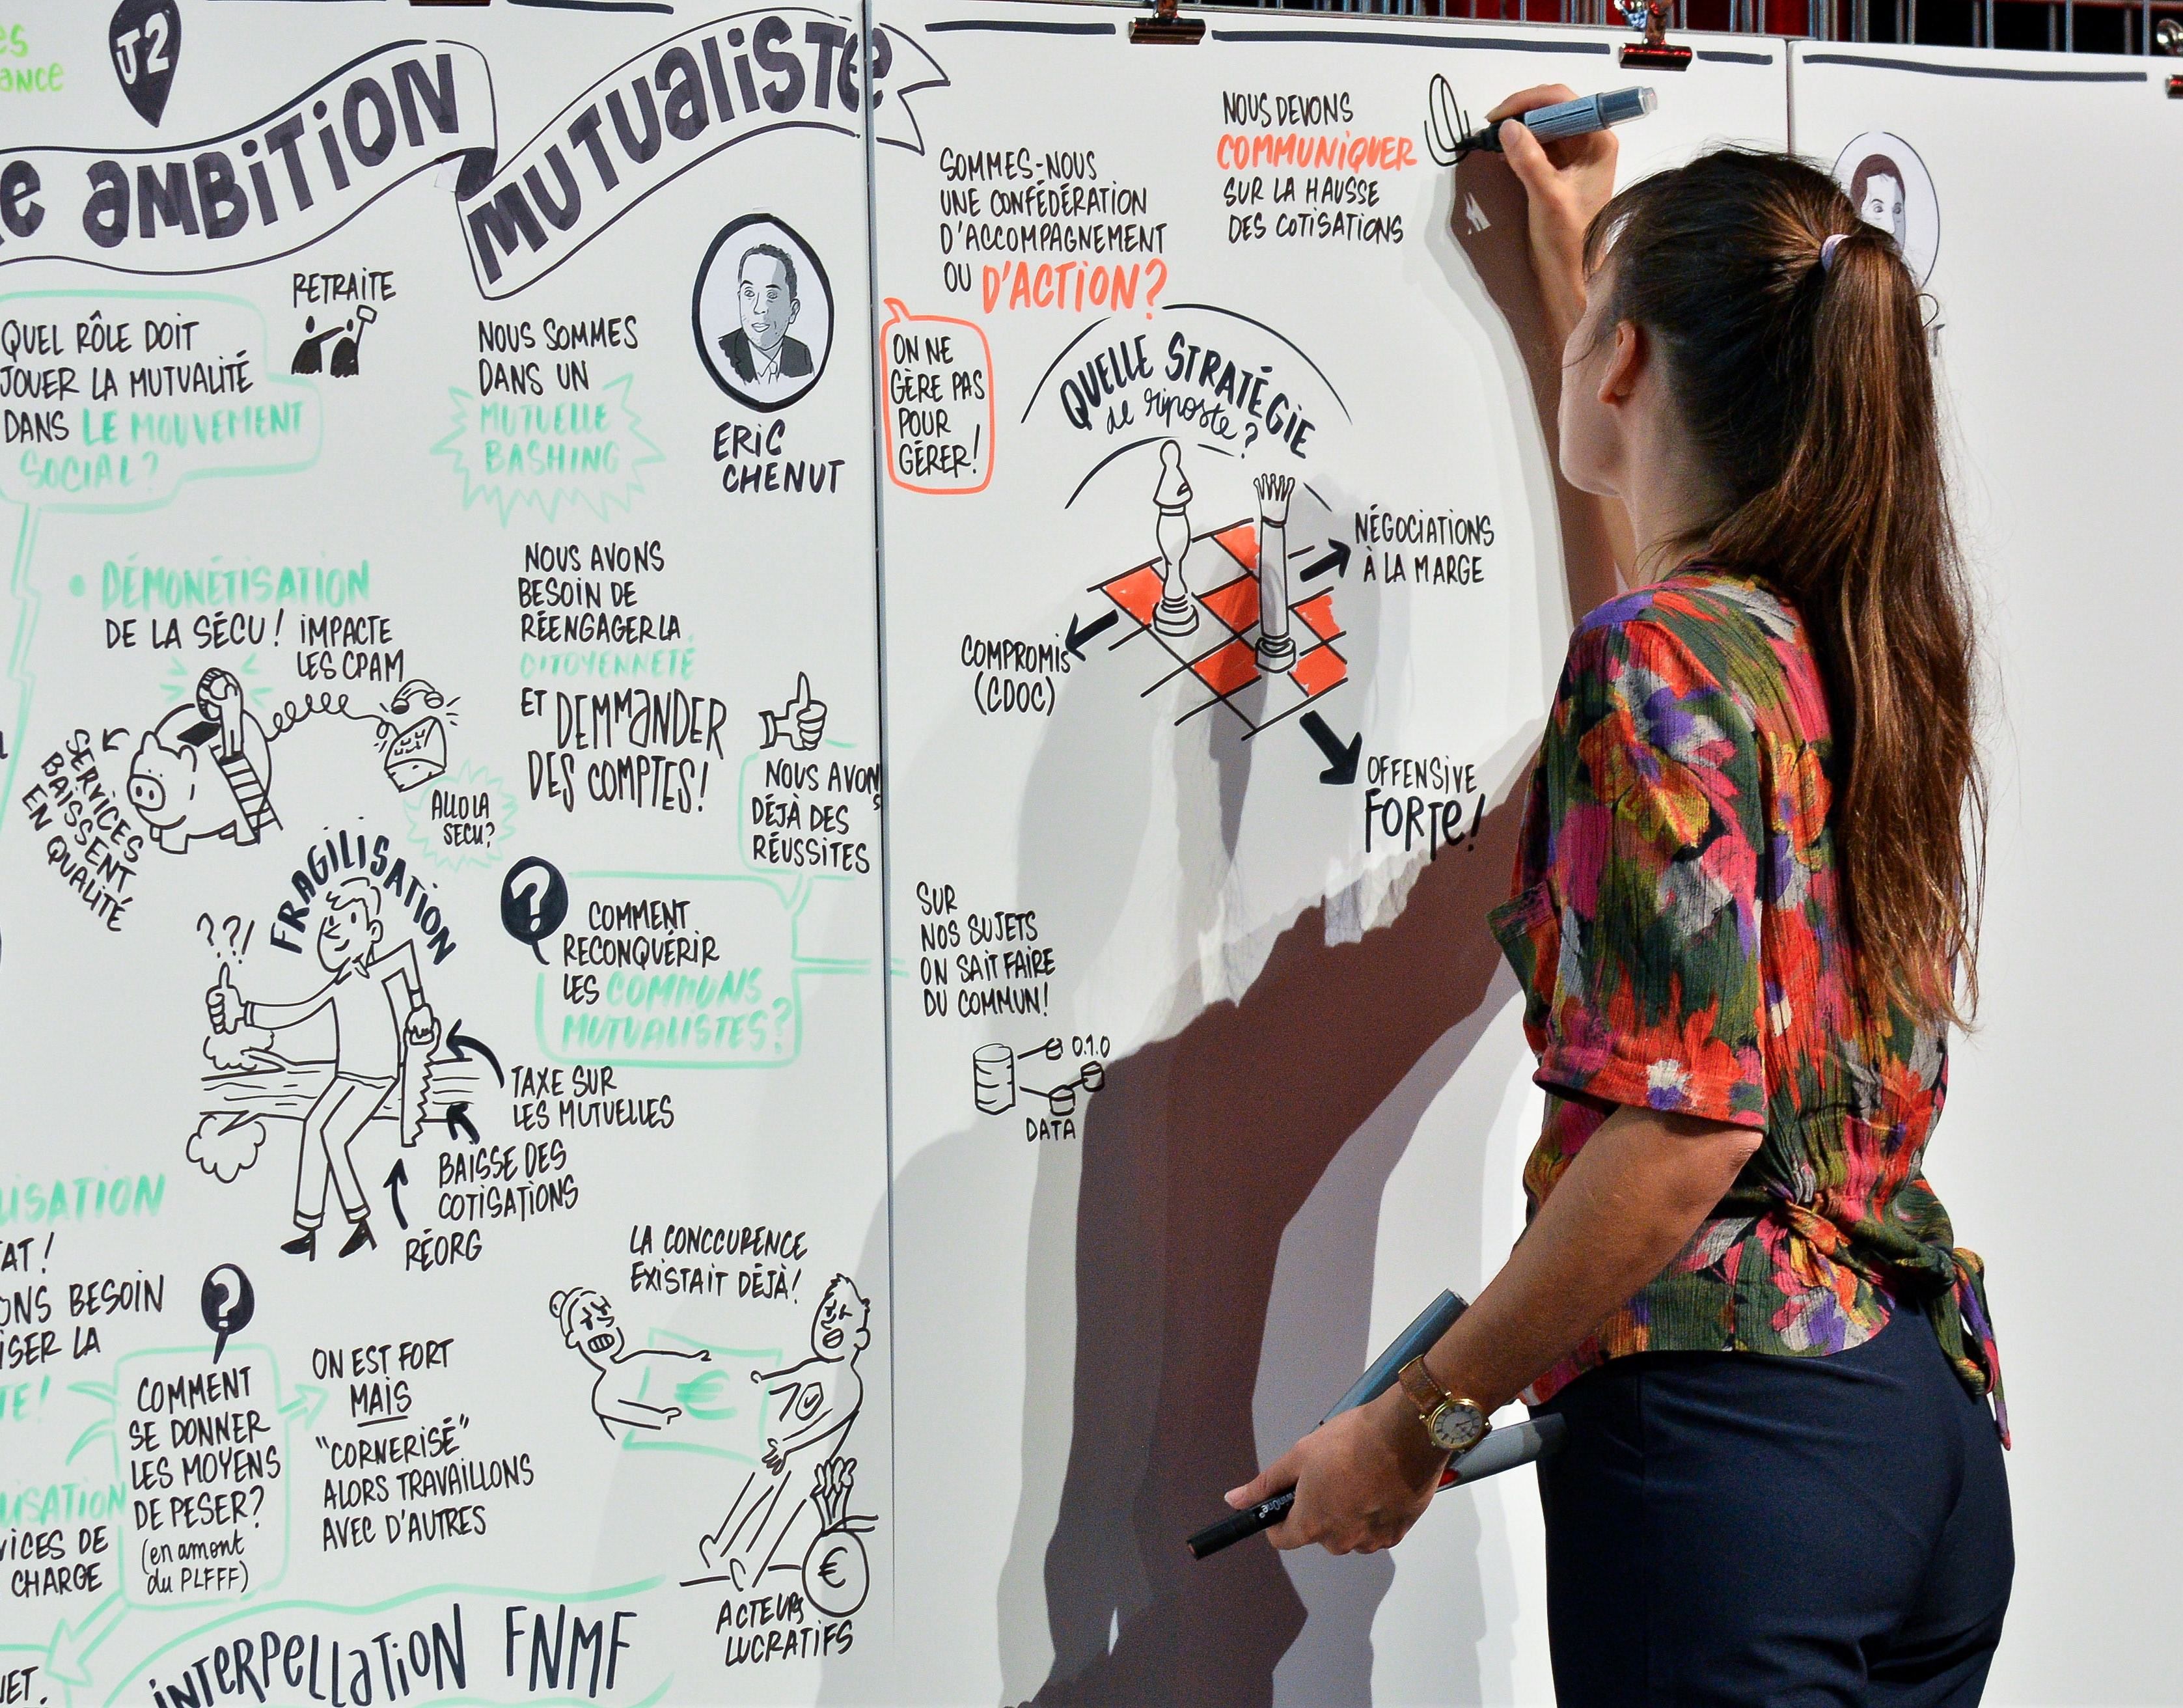 es
ance
J2
e AMBITION
MUTUALISTE
RETRAITE
QUEL RÔLE DOIT
JOUER LA MUTUALITÉ
DANS LE MOUVEMENT
SOCIAL?
NOUS SOMMES
DANS UN
MUTUELLE
BASHING
ERIC
CHENUT
• DÉMONÉTISATION
DE LA SÉCU! IMPACTE
LES CPAM
SERVICES
BAISSENT
EN QUALITÉ
ALLO LA
SECU?
NOUS AVONS
BESOIN DE
RÉENGAGER LA
CITOYENNETÉ
ET DEMMANDER
DES COMPTES!
NOUS AVONS
DÉJÀ DES
RÉUSSITES
FRAGILISATION
??!
?
COMMENT
RECONQUÉRIR
LES COMMUNS
MUTUALISTES?
TAXE SUR
LES MUTUELLES
BAISSE DES
COTISATIONS
RÉORG
LISATION
AT!
ONS BESOIN
ISER LA
TE!
LISATION
VICES DE
CHARGE
?
COMMENT
SE DONNER
LES MOYENS
DE PESER?
(en amont
du PLFFF)
ON EST FORT
MAIS
"CORNERISÉ"
ALORS TRAVAILLONS
AVEC D'AUTRES
LA CONCCURENCE
EXISTAIT DÉJÀ!
€
€
ACTEURS
LUCRATIFS
INTERPELLATION FNMF
NET.
SOMMES-NOUS
UNE CONFÉDÉRATION
D'ACCOMPAGNEMENT
OU D'ACTION?
NOUS DEVONS
COMMUNIQUER
SUR LA HAUSSE
DES COTISATIONS
ON NE
GÈRE PAS
POUR
GÉRER!
QUELLE STRATÉGIE
de riposte?
NÉGOCIATIONS
À LA MARGE
COMPROMIS
(CDOC)
OFFENSIVE
FORTE!
SUR
NOS SUJETS
ON SAIT FAIRE
DU COMMUN!
0.1.0
DATA